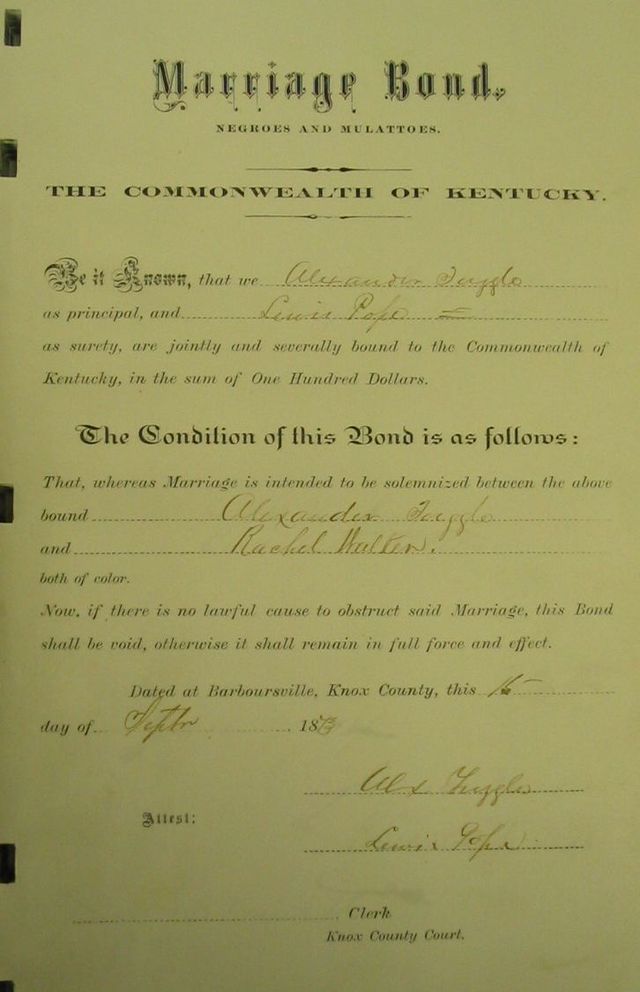 Marriage Bond.
NEGROES AND MULATTOES.
THE COMMONWEALTH OF KENTUCKY.
Be it Known, that we Alexander Tuggle
as principal, and Lewis Pope =
as surety, are jointly and severally bound to the Commonwealth of
Kentucky, in the sum of One Hundred Dollars.
The Condition of this Bond is as follows:
That, whereas Marriage is intended to be solemnized between the above
bound Alexander Tuggle
and Rachel Walker.
both of color.
Now, if there is no lawful cause to obstruct said Marriage, this Bond
shall be void, otherwise it shall remain in full force and effect.
Dated at Barboursville, Knox County, this
day of Septr 1873
Alx Tuggle
Attest:
Lewis Pope
Clerk
Knox County Court.